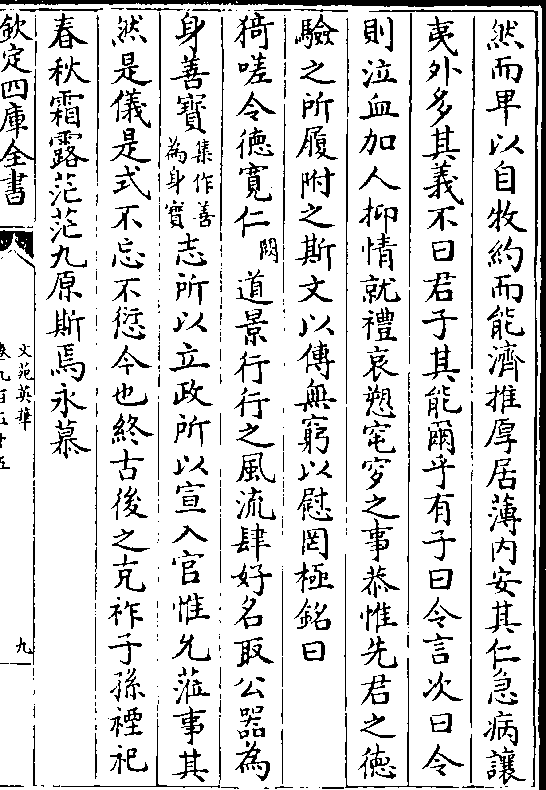 然而卑以自牧約而能濟推厚居薄内安其仁急病讓
夷外多其義不曰君子其能爾乎有子曰令言次曰令
則泣血加人抑情就禮哀愬窀穸之事恭惟先君之德
驗之所履附之斯文以傳無窮以慰罔極銘曰
猗嗟令德寛仁闕道景行行之風流肆好名取公器為
身善寳集作善為身寳志所以立政所以宣入官惟允蒞事其
然是儀是式不忘不愆今也終古後之克祚子孫禋祀
春秋霜露茫茫九原斯焉永慕
欽定四庫全書
文苑英華
卷九百五十五
九